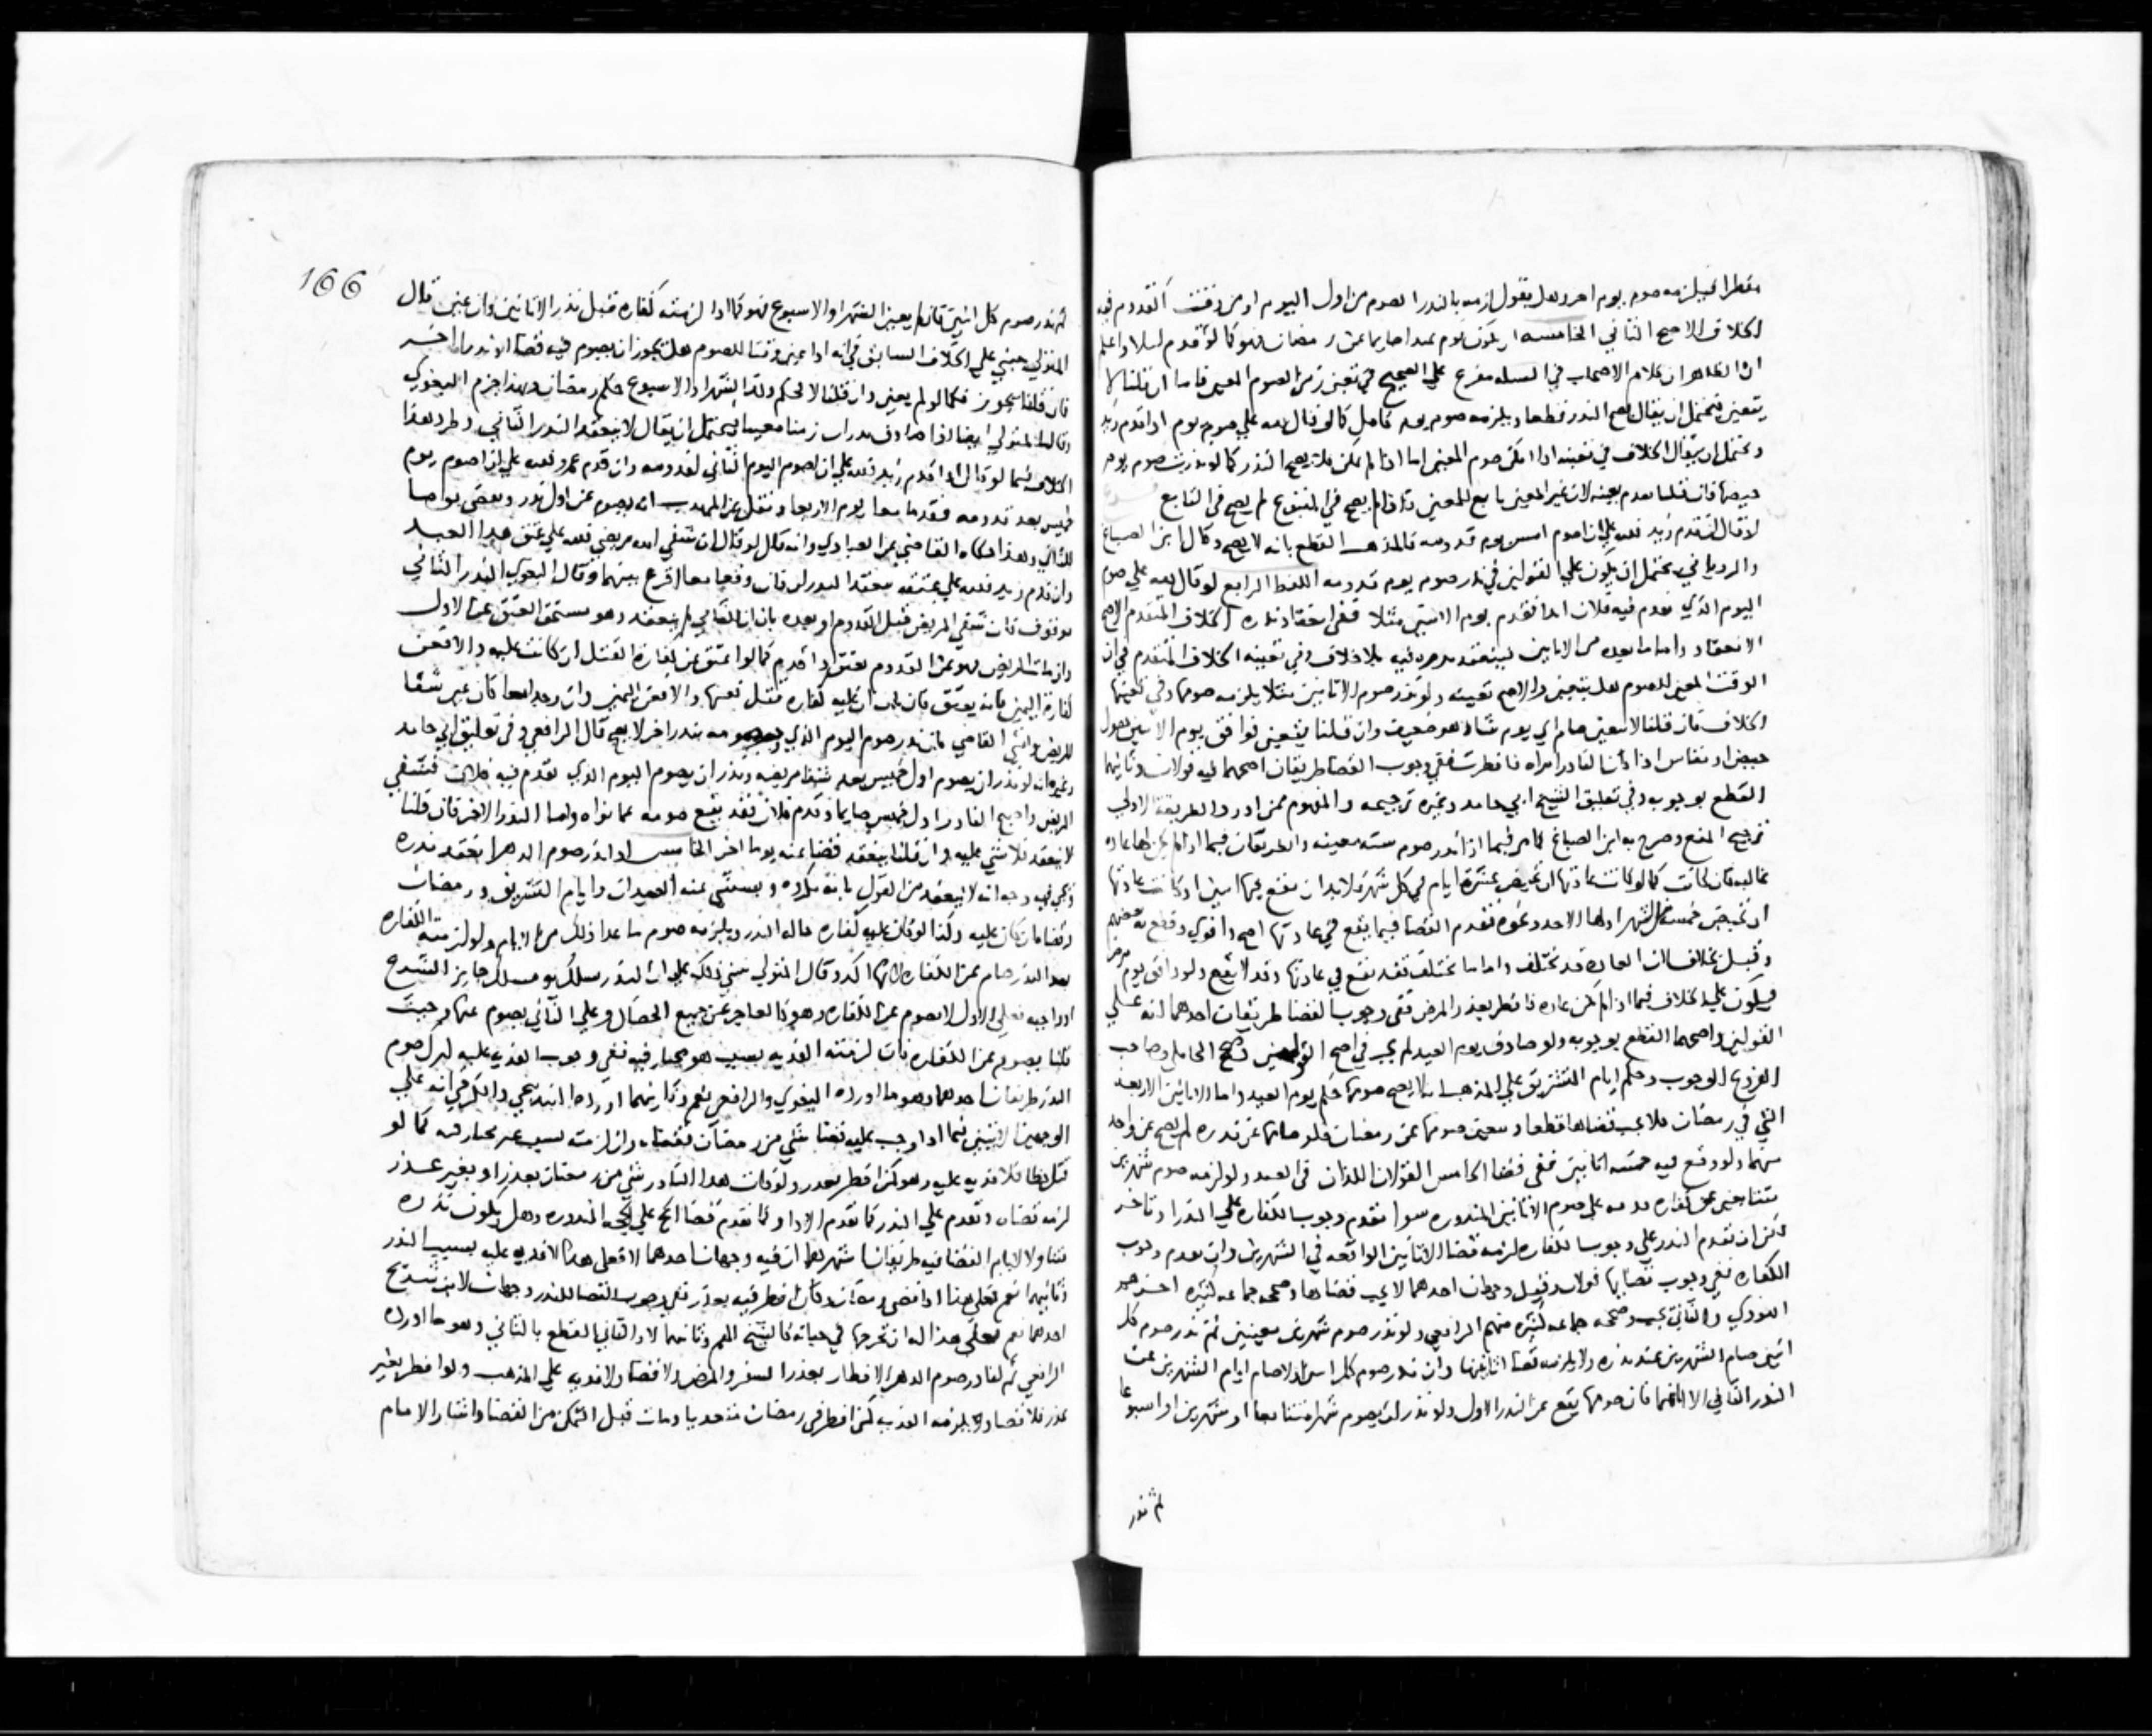 مفطرا فيلزمه صوم يوم اخر وهل يقول لزمه بالنذر الصوم من اول اليوم او من وقت القدوم فيه
الخلاف الاصح الثاني الخامسه ان يكون يوم عيد او صايما عن رمضان فهو كما لو قدم ليلا واعلم
ان الظاهر ان كلام الاصحاب في المسله مفرع على الصحيح في تعين زمن الصوم المعين فاما ان قلنا لا
يتعين فيحتمل ان يقال يصح النذر قطعا ويلزمه صوم يوم كامل كما لو قال لله علي صوم يوم اذا قدم زيد
ويحتمل ان يقال الخلاف في تعينه اذا امكن صوم المعين اما اذا لم يمكن فلا يصح النذر كما لو نذرت صوم يوم
حيضها فان قلنا بعدم تعينه لان غير المعين تابع للمعين واذا لم يصح في المتبوع لم يصح في التابع
لو قال ان قدم زيد فلله علي ان اصوم امس يوم قدومه فالمذهب القطع بانه لا يصح وقال ابن الصباغ
والروياني يحتمل ان يكون على القولين في نذر صوم يوم قدومه اللفظ الرابع لو قال لله علي صوم
اليوم الذي يقدم فيه فلان ابدا فقدم يوم الاثنين مثلا ففي انعقاد نذره الخلاف المتقدم الاصح
الانعقاد واما ما بعده من الاثانين فينعقد نذره فيه بلا خلاف وفي تعينه الخلاف المتقدم في ان
الوقت المعين للصوم هل يتعين والاصح تعينه ولو نذر صوم الاثانين مثلا يلزمه صومها وفي تعينها
الخلاف فان قلنا لا يتعين صام اي يوم شاء وهو ضعيف وان قلنا يتعين فوافق يوم الاثنين يوم
حيض او نفاس اذا كان الناذر امراه فافطرت ففي وجوب القضا طريقان اصحهما فيه قولان وثانيهما
القطع بوجوبه وفي تعليق الشيخ ابي حامد وغيره ترجيحه والمفهوم ممن اورد الطريقة الاولى
ترجيح المنع وصرح به ابن الصباغ كما مر فيما اذا نذر صوم سنه معينه والطريقان فيما اذا لم يكن لها عاده
غالبه فان كانت كما لو كانت عادتها ان تحيض عشرة ايام في كل شهر فلا بد ان يقع فيها اثنين او كانت عادتها
ان تحيض خمسة من الشهر اولها الاحد ونحوه فعدم القضا فيما يقع في عادتها اصح واقوى وقطع به بعضهم
وقيل بخلاف ان العاده قد تختلف واما ما تختلف فقد يقع في عادتها وقد لا يقع ولو وافق يوم مرض
فيكون على الخلاف فيما اذا لم يكن عاده فافطر بعذر المرض ففي وجوب القضا طريقان احدهما انه على
القولين واصحهما القطع بوجوبه ولو صادف يوم العيد لم يجب في اصح القولين ورجح المحاملي وصاحب
الفروع الوجوب وحكم ايام التشريق على المذهب انه لا يصح صومها حكم يوم العيد واما الاثانين الاربعه
التي في رمضان فلا يجب قضاها قطعا ويتعين صومها عن رمضان فلو صامها عن نذره لم يصح عن واحد
منهما ولو وقع فيه خمسه اثانين ففي قضا الخامس القولان اللذان في العيد ولو لزمه صوم شهرين
متتابعين عن كفاره قدمه على صوم الاثانين المنذوره سوا تقدم وجوب الكفاره على النذر او تاخر
لكن ان تقدم النذر على وجوب الكفاره لزمه قضا الاثانين الواقعه في الشهرين وان تقدم وجوب
الكفاره ففي وجوب قضايها قولان وقيل وجهان احدهما لا يجب قضاها وصححه جماعه كثيره اخرهم
النووي والثاني يجب وصححه جماعه كثيره منهم الرافعي ولو نذر صوم شهرين معينين ثم نذر صوم كل
اثنين صام الشهرين عن نذره ولا يلزمه قضا اثانينها وان نذر صوم كل اثنين اولا صام ايام الشهرين عن
النذر الثاني الا اثانينها فان صومها يقع عن النذر الاول ولو نذر ان يصوم شهرا متتابعا او شهرين او اسبوعا
ثم نذر
166
ثم نذر صوم كل اثنين فان لم يعين الشهر او الاسبوع فهو كما اذا لزمته كفاره قبل نذر الاثانين وان عين قال
المتولي يبنى على الخلاف السابق في انه اذا عين وقتا للصوم هل يجوز ان يصوم فيه قضا او نذرا اخر
فان قلنا يجوز فكما لو لم يعين وان قلنا لا فحكم ذلك الشهر او الاسبوع حكم رمضان وبهذا جزم البغوي
وقاله المتولي ايضا اذا صادف نذران زمنا معينا فيحتمل ان يقال لا ينعقد النذر الثاني وطرد هذا
الخلاف فيما لو قال اذا قدم زيد فلله علي ان اصوم اليوم الثاني لقدومه وان قدم عمرو فلله علي ان اصوم يوم
خميس بعد قدومه فقدما معا يوم الاربعا ونقل عن المهذب انه يصوم عن اول نذر ويقضي يوما
للثاني وهذا حكاه القاضي عن العبادي وانه قال لو قال ان شفي الله مريضي فلله علي عتق هذا العبد
وان قدم زيد فلله علي عتقه فعقد النذران فان وقعا معا اقرع بينهما وقال البغوي النذر الثاني
موقوف فان شفي المريض قبل القدوم او بعده بان ان الثاني لم ينعقد وهو مستحق العتق عن الاول
وان مات المريض فهو عن القدوم يعتق اذا قدم كما لو اعتق عن كفارة القتل ان كانت عليه والا فعن
كفارة اليمين فانه يعتق فان بان ان عليه كفاره قتل تعينها والا فعن اليمين وان وجدا معا كان عن شفا
المريض وافتى القاضي بان نذر صوم اليوم الذي يصومه بنذر اخر لا يصح قال الرافعي وفي تعليق ابي حامد
وغيره انه لو نذر ان يصوم اول خميس بعد شفا مريضه ونذر ان يصوم اليوم الذي يقدم فيه فلان فشفي
المريض واصبح الناذر اول خميس صايما وقدم فلان فقد يقع صومه عما نواه واما النذر الاخر فان قلنا
لا ينعقد فلا شي عليه وان قلنا ينعقد قضا عنه يوما اخر الخامس اذا نذر صوم الدهر انعقد نذره
وفيه وجه انه لا ينعقد من القول بانه مكروه ويستثنى عنه العيدان وايام التشريق ورمضان
وقضاه ان كان عليه وكذا لو كان عليه كفاره حاله النذر ويلزمه صوم ما عدا ذلك من الايام ولو لزمته الكفاره
بعد النذر صام عن الكفاره لانها اكد وقال المتولي يبنى ذلك على ان النذر يسلك به مسلك جايز الشرع
او واجبه فعلى الاول لا يصوم عن الكفاره وهو كالعاجز عن جميع الخصال وعلى الثاني يصوم عنها وحيث
قلنا يصوم عن الكفاره فان لزمته الفديه بسبب هو مختار فيه ففي وجوب الفديه عليه لبدل صوم
النذر طريقان احدهما وهو ما اورده البغوي والرافعي نعم وثانيهما اورده البندنيجي والكرخي انه على
الوجهين الاتيين فيما اذا وجب عليه قضا شي من رمضان فقضاه وان لزمت بسبب غير مختار فيه كما لو
قتل خطا فلا فديه عليه وهو كمن افطر بعذر ولو فات هذا الناذر شي من رمضان بعذر او بغير عذر
لزمه قضاه وتقدم على النذر كما تقدم الادا وكما تقدم قضا الحج على الحجه المنذوره وهل يكون نذره
متناولا لايام القضا فيه طريقان اشهرهما ان فيه وجهان احدهما لا فعلى هذا لا فديه عليه بسبب النذر
وثانيهما نعم فعلى هذا اذا قضى رمضان وكان افطر فيه بعذر ففي وجوب القضا للنذر وجهان لابن سريج
احدهما نعم فعلى هذا له ان يخرجها في حياته كالشيخ الهم وثانيهما لا والثاني القطع بالثاني وهو ما اورده
الرافعي ثم الناذر صوم الدهر الافطار بعذر السفر والمرض ولا قضا ولا فديه على المذهب ولو افطر بغير
عذر فلا قضا ويلزمه الفديه كمن افطر في رمضان متعديا ومات قبل التمكن من القضا واشار الامام